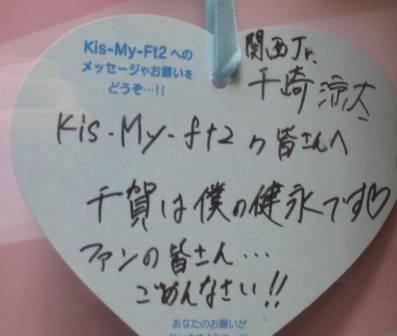 Kis-My-Ft2への
メッセージやお願いを
どうぞ…!!
関西Jr.
千崎 涼太
Kis-My-ft2の皆さんへ
千賀は僕の健永です♡
ファンの皆さん…
ごめんなさい!!
あなたのお願いが